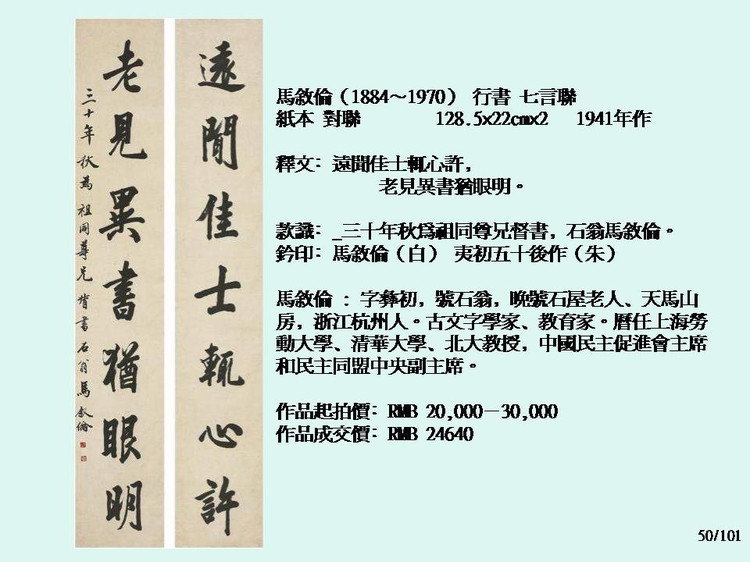 遠聞佳士輒心許
老見異書猶眼明
三十年秋為祖同尊兄督書石翁馬敘倫
馬敘倫（1884～1970） 行書 七言聯
紙本 對聯 128.5x22cmx2 1941年作
釋文: 遠聞佳士輒心許，
老見異書猶眼明。
款識: _三十年秋爲祖同尊兄督書，石翁馬敘倫。
鈐印: 馬敘倫（白） 夷初五十後作（朱）
馬敘倫 : 字彝初，號石翁，晚號石屋老人、天馬山
房，浙江杭州人。古文字學家、教育家。曆任上海勞
動大學、清華大學、北大教授，中國民主促進會主席
和民主同盟中央副主席。
作品起拍價: RMB 20,000－30,000
作品成交價: RMB 24640
50/101